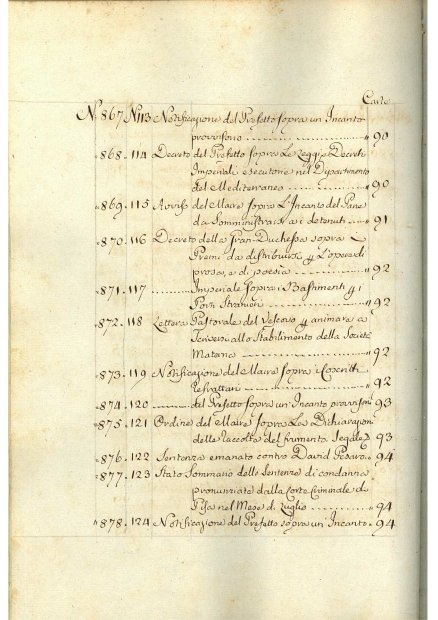 Carte
N. 867 N. 113 Notificazione del Prefetto sopra un' Incanto
provvisorio ............ " 90
" 868 . 114 Decreto del Prefetto sopra Le Leggi, e Decreti
Imperiali esecutorie nel Dipartimento
del Mediterraneo ........ " 90
" 869 . 115 Avviso del Maire sopra L'Incanto del Pane
da Somministrarsi a i detenuti .... " 91
" 870 . 116 Decreto della Gran-Duchessa sopra
Premi da distribuirsi p L'opere di
prosa, e di poesia ........ " 92
" 871 . 117 ........ Imperiale sopra i Bastimenti p i
Porti Stranieri ........ " 92
" 872 . 118 Lettera Pastorale del Vescovo p animare a
scriversi allo Stabilimento della Società
Materna ........ " 92
" 873 . 119 Notificazione del Maire sopra i Coscritti
refrattari ........ " 92
" 874 . 120 ........ del Prefetto sopra un' Incanto provvisorio 93
" 875 . 121 Ordine del Maire sopra Le Dichiarazioni
della raccolta del frumento Segale 93
" 876 . 122 Sentenza emanata contro David Pesaro " 94
" 877 . 123 Stato Sommario delle Sentenze di condanna
pronunziate dalla Corte Criminale di
Pisa nel Mese di Luglio ........ " 94
" 878 . 124 Notificazione del Prefetto sopra un' Incanto " 94